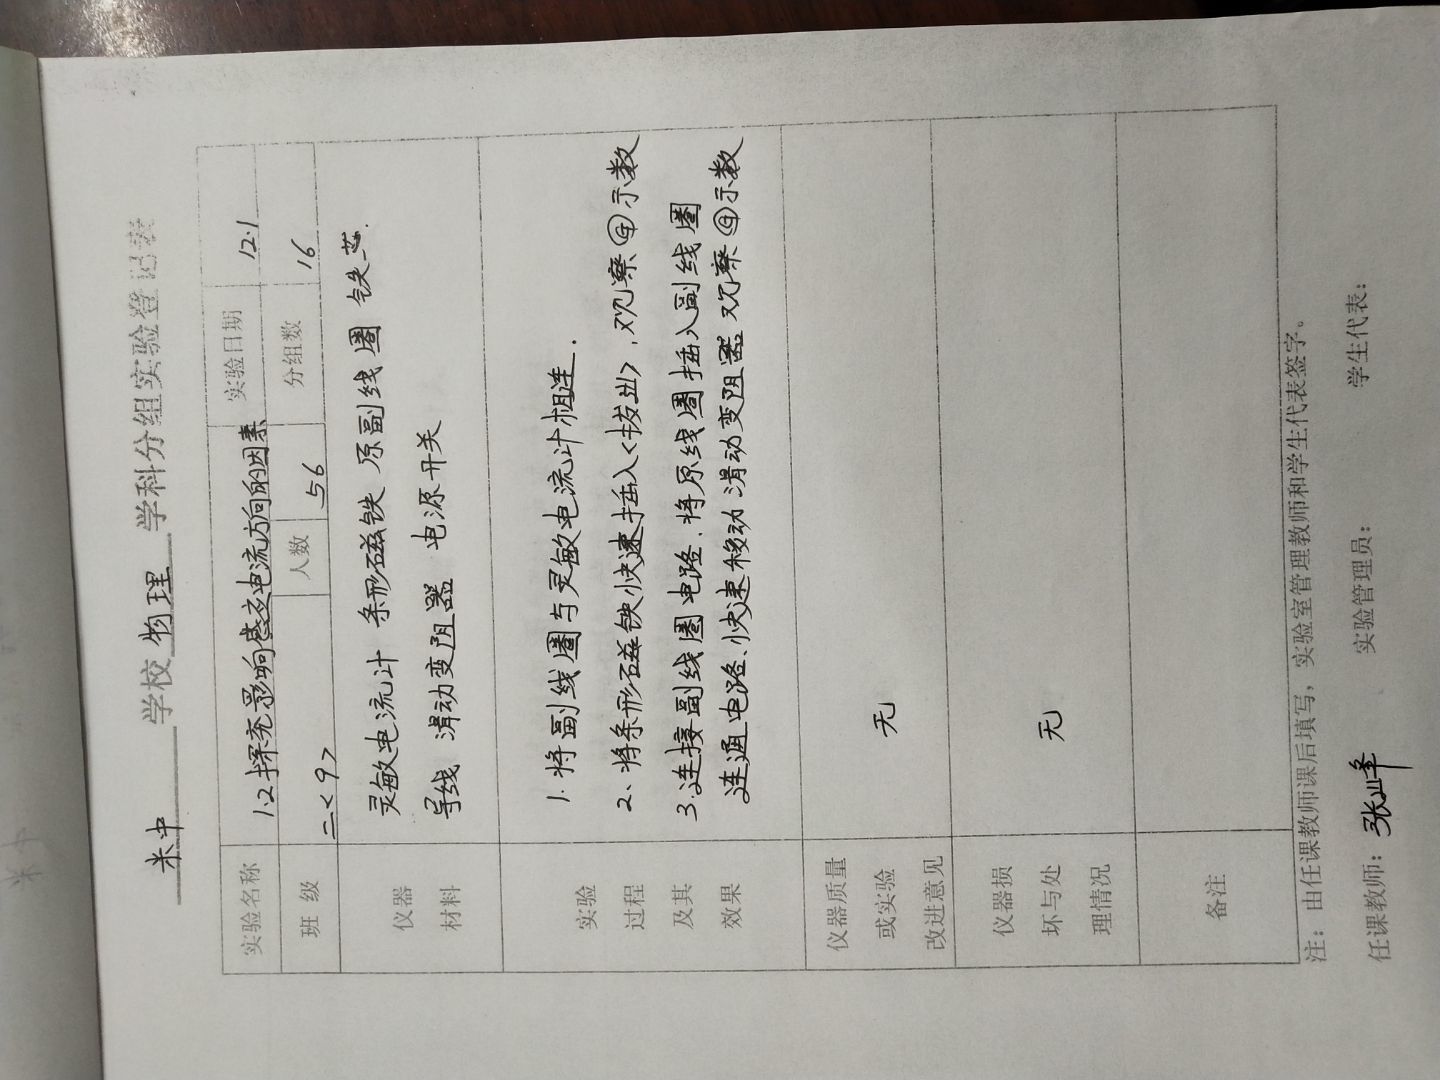 米中 学校 物理 学科分组实验登记表
实验名称 1.2探究影响感应电流方向的因素 实验日期 12.1
班级 二<9> 人数 56 分组数 16
仪器材料 灵敏电流计 条形磁铁 原副线圈 铁芯.
导线 滑动变阻器 电源开关
实验过程及其效果 1. 将副线圈与灵敏电流计相连.
2、将条形磁铁快速插入<拔出>,观察Ⓖ示数
3.连接副线圈电路、将原线圈插入副线圈
连通电路、快速移动滑动变阻器 观察Ⓖ示数
仪器质量或实验改进意见 无
仪器损坏与处理情况 无
备注
注:由任课教师课后填写,实验室管理教师和学生代表签字。
任课教师:张峰 实验管理员: 学生代表: